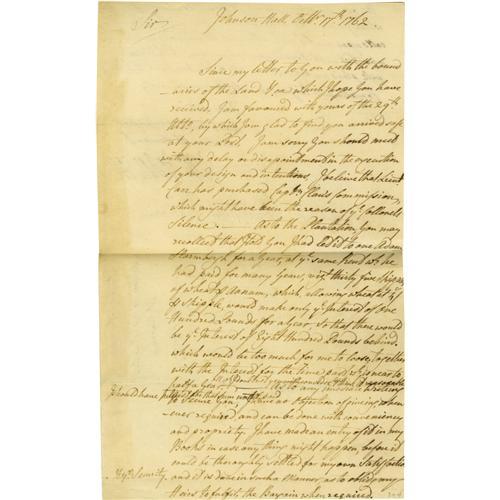 Sir Johnson Hall Octbr. 17th. 1762.
Since my letter to You with the bound
-aries of the Land &ca which I hope You have
received. I am favoured with yours of the 29th
Ulto, by which I am glad to find you arrived safe
at your Post. I am sorry You should meet
with any delay or disapointment in the execution
of your design and intentions. I believe that Lieut
Carr has purchased Captn Commission,
which might have been the reason of ye. Collonels
Silence. As to the Plantation You may
recollect that I told You I had let it to one Adam
for a Year, at ye. same Rent wh. he
had paid for many Years, vizt. thirty five
of wheat Annum, which, allowing wheat at
Skiple, would make only ye. Interest of One
Hundred Pounds for a Year. so that there would
be ye. Interest of Eight Hundred Pounds behind,
which would be too much for me to loose, together
with the Interest for the time past wh. is near to
half a Year
I should have for that Sum with
You, I have no Objection of giving when
-ever required and can be done with conveniency
and propriety. I have made an entry of it in my
Books in case any thing might happen, before it
could be thoroughly settled for my own Satisfaction
& yr. Security, and it is done in such a Manner, as to oblige my
Heirs to fulfil the Bargain when required.